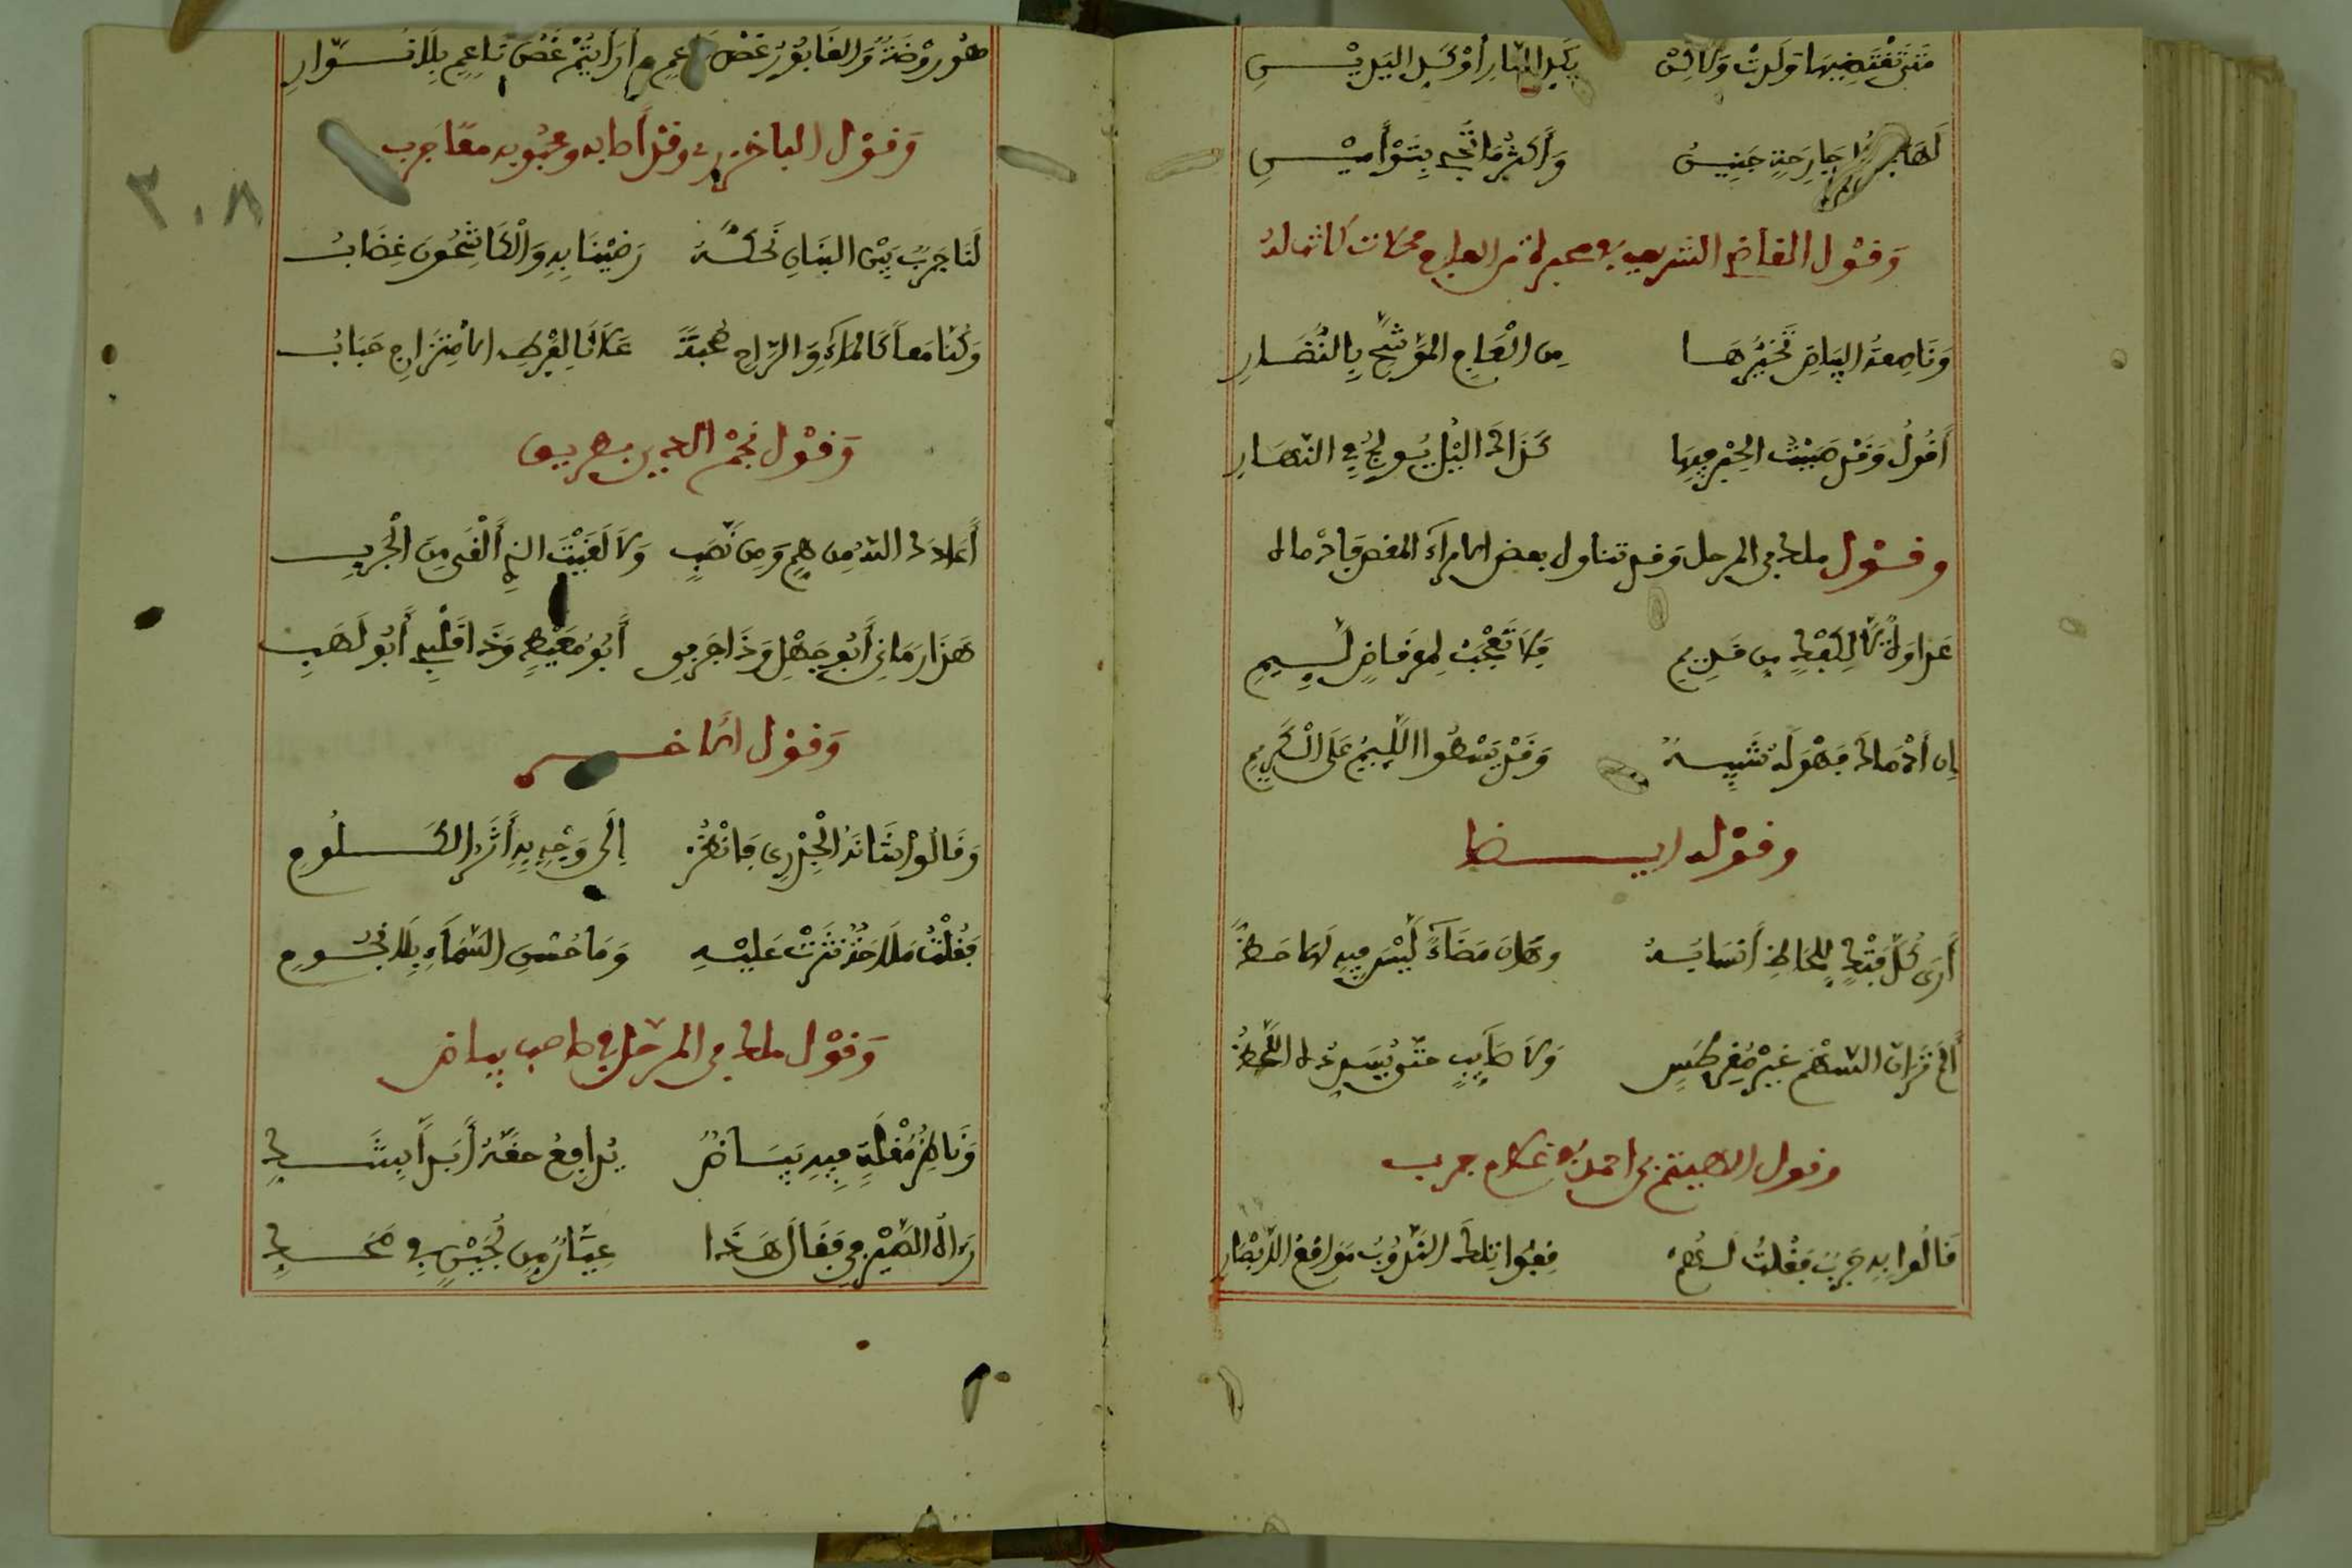 متى تفتضها ولدت ولاكن بكد النهار أو كد اليدين
لها جارحة جنين وأكثر ما تجيء بتوأمين
وقول القاضي الشريف في محبرة من العاج محلات كانت له
وناصعة البياض تخيرها من العاج الموشح بالنضار
أقول وقد صببت الحبر فيها كذاك الليل يولج في النهار
وقول ملك بن المرحل وقد تناول بعض الامراء المقص فأدماه
عداوة لا لكفك من قديم فلا تعجب لمقراض لئيم
لئن أدماك فهو له شبيه وقد يسطوا اللئيم على الكريم
وقوله ايضا
أرى كل فتك للحاظ انتسابه وكان مضاء ليس فيه لها حظ
ألم تر أن السهم غير مقرطس ولا صايب حتى يسدده اللحظ
وقول الاهيتم بن احمد في غلام جرب
قالوا به جرب فقلت لهم قفوا تلك الندوب مواقع الابصار
هو روضة والغابور غض ناعم أو رأيتم غض ناعم بلا نوار
وقول الباخرزي وقد أصابه ومحبوبه معا جرب
لنا جرب بين البنان نحكه رضينا به والكاشحون غضاب
وكنا معا كالماء والراح صحبة علانا لفرط الامتزاج حباب
وقول نجم الدين بن
أعاذك الله من هم ومن نصب ولا لقيت الذي ألقى من الجرب
هذا رماني أبو جهل وذا جربي أبو معيط وذا قلبي أبو لهب
وقول الاخر
وقالوا شانه الجدري فانظر إلى وجه به أثر الكلوم
فقلت ملاحة نثرت عليه وما حسن السماء بلا نجوم
وقول ملك بن المرحل في صاحب بياض
وناظر مقلة فيه بياض يدافع حقه أبدا بشك
رءاه الصيرفي فقال هذا عيار من لجين في محك
٣٠٨